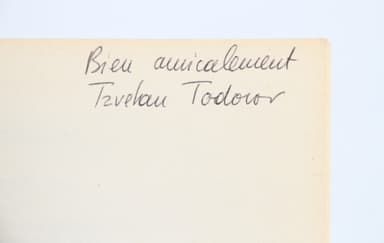 Bien amicalement
Tzvetan Todorov